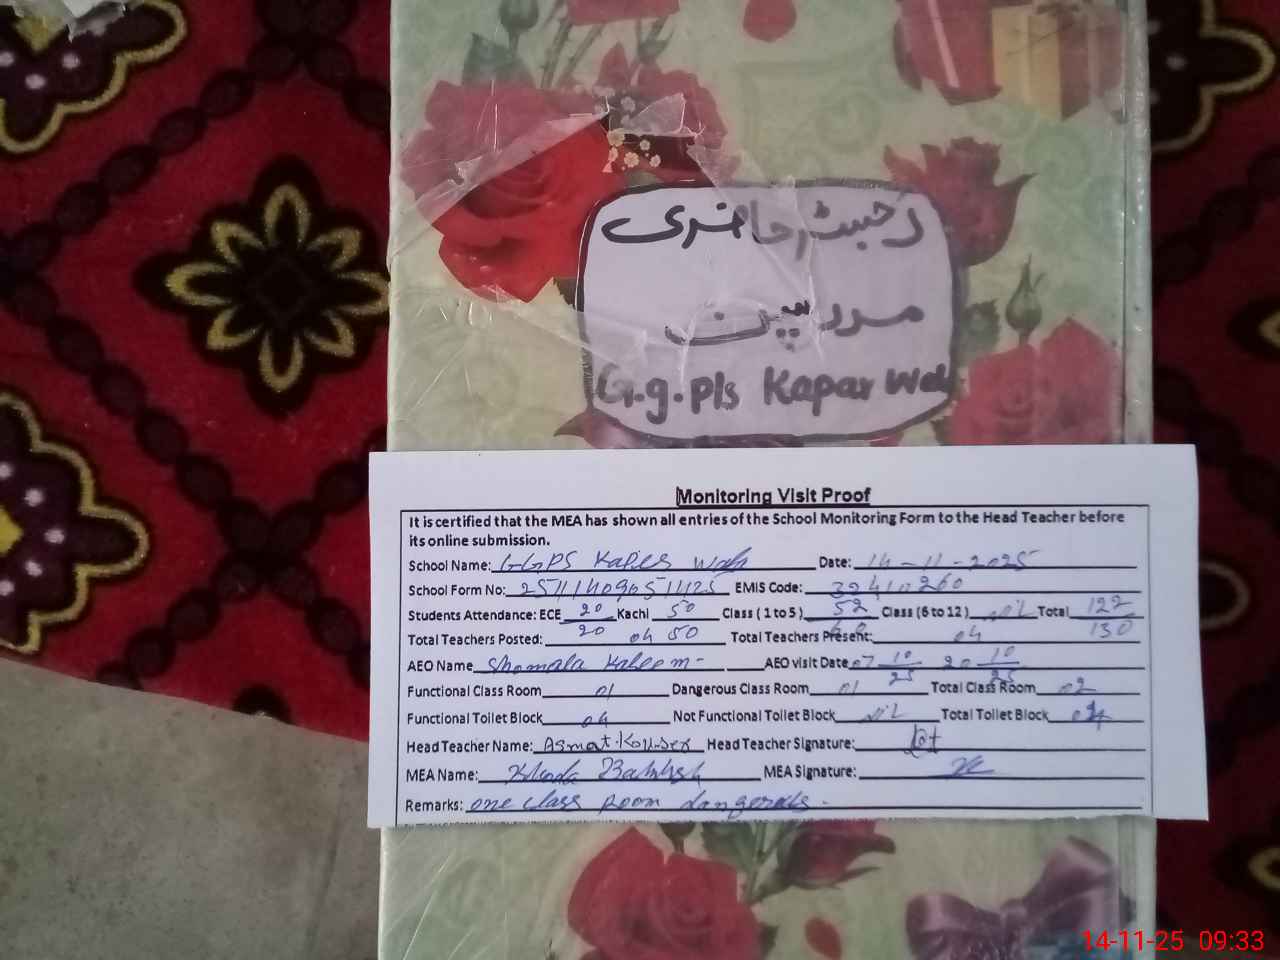 رجسٹر حاضری
مدرسین
G.g.pls Kapar Wah
Monitoring Visit Proof
It is certified that the MEA has shown all entries of the School Monitoring Form to the Head Teacher before
its online submission.
School Name: GGPS Date: 14-11-2025
School Form No: EMIS Code:
Students Attendance: ECE 20 Kachi 50 Class (1 to 5) 52 Class (6 to 12) Nil Total 122
20 50 60 130
Total Teachers Posted: 04 Total Teachers Present: 04
AEO Name Shomala Kaleem AEO visit Date 07 10/25 20 10/25
Functional Class Room 01 Dangerous Class Room 01 Total Class Room 02
Functional Toilet Block 04 Not Functional Toilet Block Nil Total Toilet Block 04
Head Teacher Name: Asmat Kousar Head Teacher Signature:
MEA Name: MEA Signature:
Remarks: one class room dangerous.
14-11-25 09:33